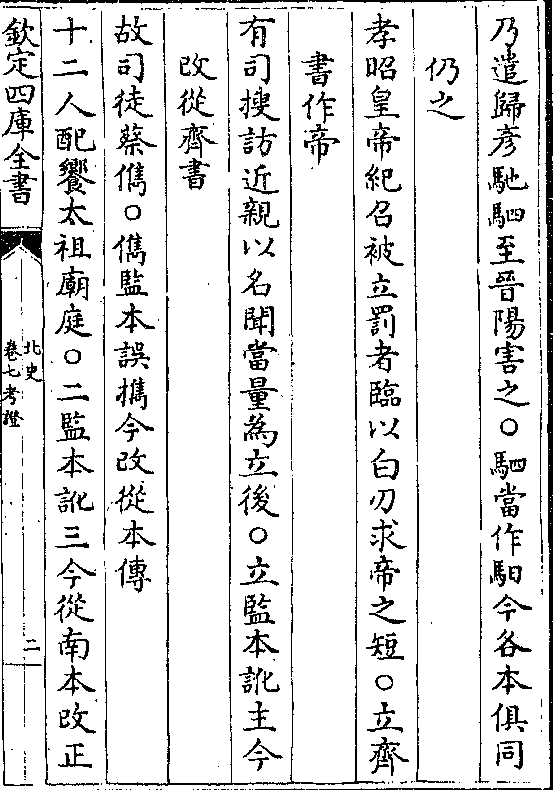 乃遣歸彦馳駟至晉陽害之○駟當作馹今各本俱同
仍之
孝昭皇帝紀召被立罰者臨以白刃求帝之短○立齊
書作帝
有司搜訪近親以名聞當量為立後○立監本訛主今
改從齊書
故司徒蔡儁○儁監本誤擕今改從本傳
十二人配饗太祖廟庭○二監本訛三今從南本改正
欽定四庫全書
北史
卷七考證
二